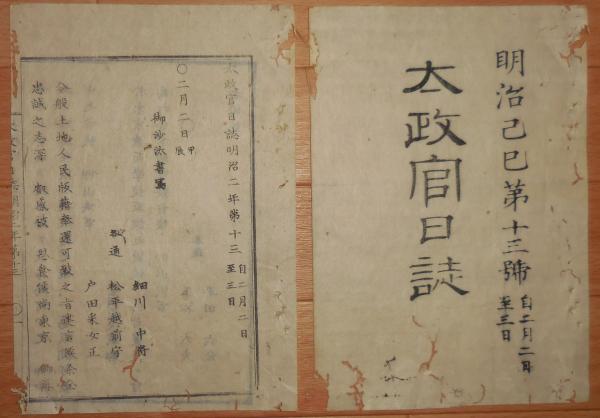 明治己巳第十三號 自二月二日
至三日
太政官日誌
太政官日誌明治二年第十三 自二月二日
至三日
〇二月二日 甲辰
御沙汰書寫
細川中将
各通 松平越前守
戸田采女正
今般土地人民版籍奉還可致之旨
忠誠之志深 叡感被 思食候